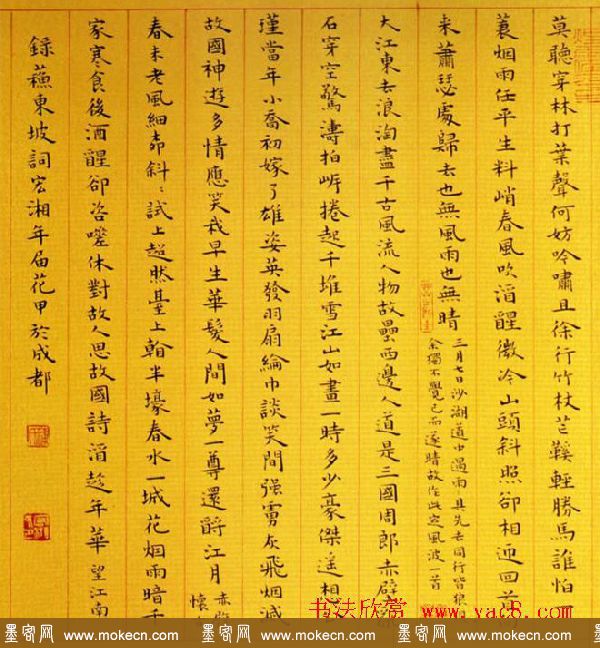 莫聽穿林打葉聲何妨吟嘯且徐行竹杖芒鞋輕勝馬誰怕
蓑烟雨任平生料峭春風吹酒醒微冷山頭斜照卻相迎回首
来蕭瑟處歸去也無風雨也無晴
三月七日沙湖道中遇雨具先去同行皆狼
余獨不覺已而遂晴故作此定風波一首
大江東去浪淘盡千古風流人物故壘西邊人道是三國周郎赤壁
石穿空驚濤拍岸捲起千堆雪江山如畫一時多少豪傑遙想
瑾當年小喬初嫁了雄姿英發羽扇綸巾談笑間强虜灰飛烟滅
故國神遊多情應笑我早生華髮人間如夢一尊還酹江月
赤壁
懷
春未老風細柳斜斜試上超然臺上看半壕春水一城花烟雨暗千
家寒食後酒醒卻咨嗟休對故人思故國詩酒趁年華 望江南
錄蘇東坡詞宏湘年届花甲於成都
书法欣赏 www.yac8.com
墨客网 www.mokecn.com 墨客网 www.mokecn.com 墨客网 www.mokecn.com